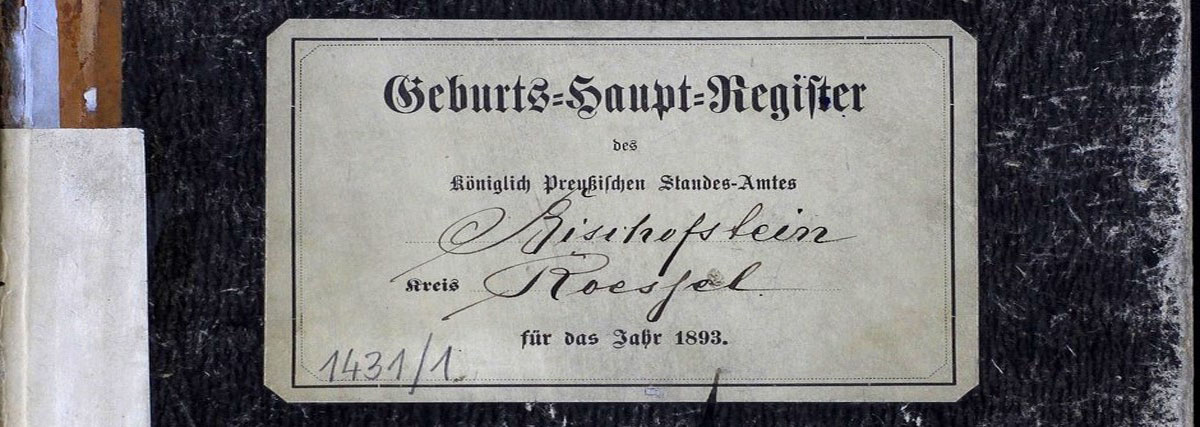 Geburts-Haupt-Register
des
Königlich Preußischen Standes-Amtes
Bischofstein
Kreis Roessel
für das Jahr 1893.
1431/1.